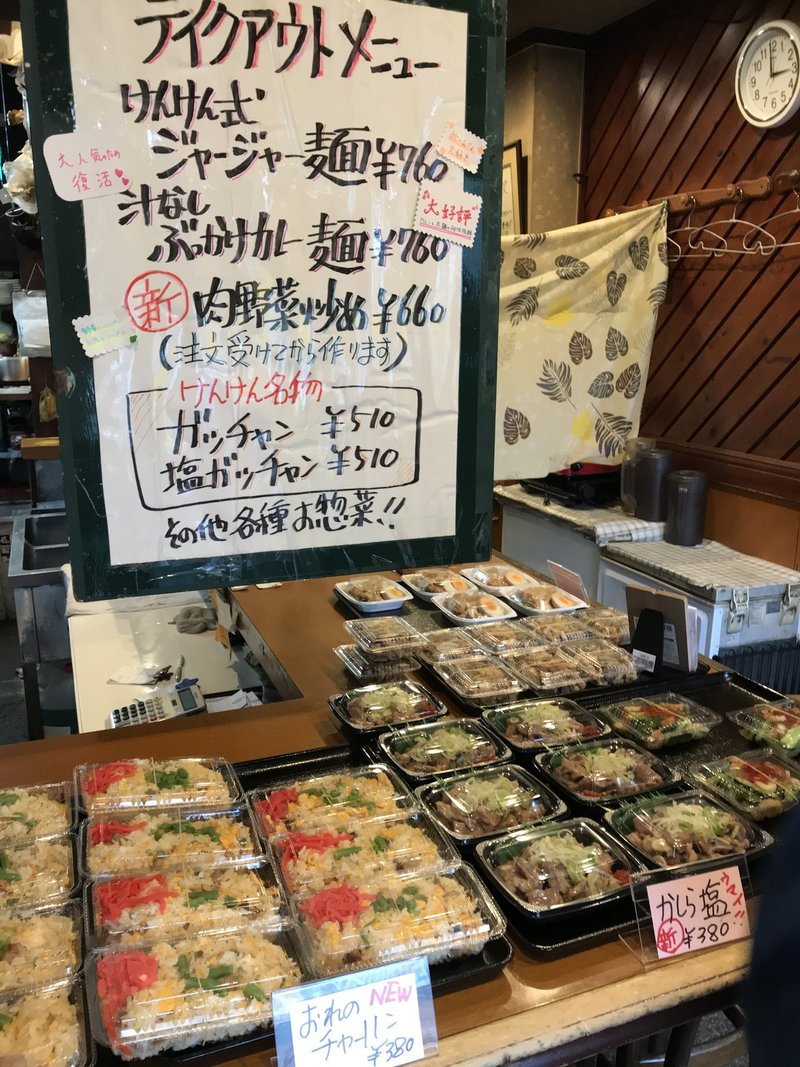 テイクアウトメニュー
けんけん式
ジャージャー麺 ¥760
大人気のため
復活
汁なし
ぶっかけカレー麺 ¥760
大好評
新 肉野菜炒め ¥660
(注文受けてから作ります)
けんけん名物
ガッチャン ¥510
塩ガッチャン ¥510
その他各種お惣菜!!
かしら塩
ウマイ!!
新 ¥380
おれの NEW
チャーハン
¥380